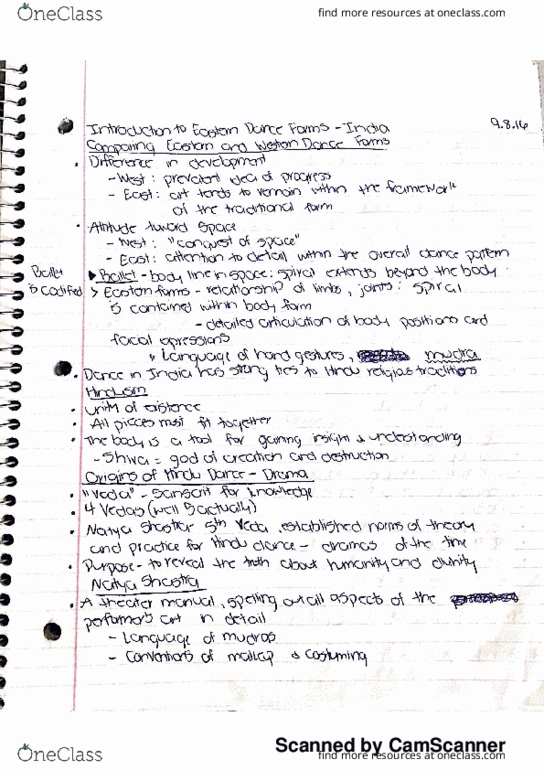 OneClass
find more resources at oneclass.com
9.8.16
Introduction to Eastern Dance Forms - India
Comparing Eastern and Western Dance Forms
• Difference in development
- West: prevalent idea of progress
- East: art tends to remain within the framework
of the traditional form
• Attitude toward Space
- West: "conquest of space"
- East: attention to detail within the overall dance pattern
Ballet
is codified
▸ Ballet - body line in space: spiral extends beyond the body
> Eastern forms - relationship of limbs, joints: spiral
is contained within body form
- detailed articulation of body positions and
facial expressions
Language of hand gestures, mudra
• Dance in India has strong ties to Hindu religias traditions
Hinduism
• Unity of existence
• All pieces must fit together
• The body is a tool for gaining insight & understanding
- Shiva = god of creation and destruction
Origins of Hindu Dance - Drama
• "Veda" - Sanscrit for knowledge
• 4 Vedas (well 5 actually)
• Natya Shastra 5th Veda, established norms of theory
and practice for Hindu dance - dramas of the time
• Purpose - to reveal the truth about humanity and divinity
Natya Shastra
• A theater manual, spelling out all aspects of the
performers art in detail
- Language of mudras
- Conventions of makup & costuming
Scanned by CamScanner
OneClass
find more resources at oneclass.com